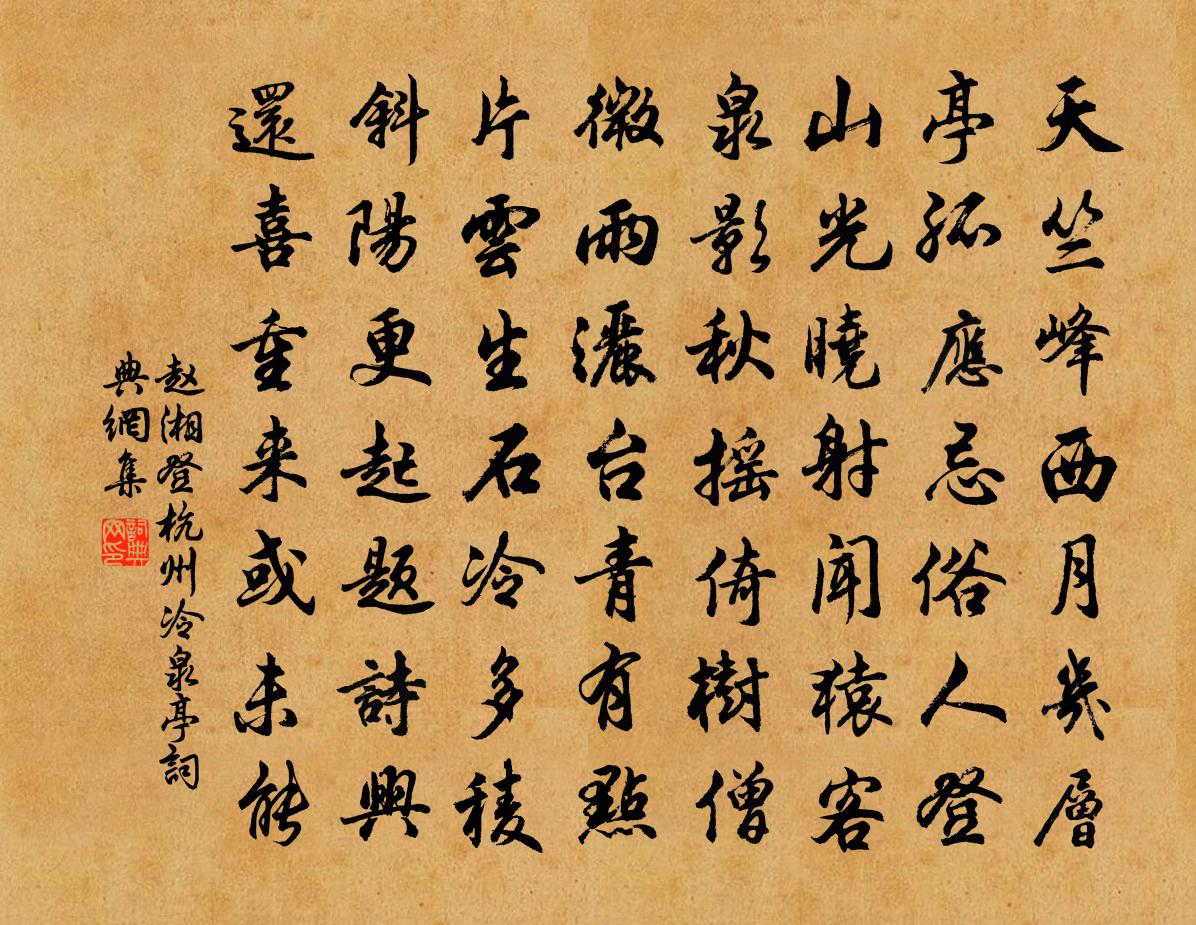 天竺峰西月幾層
亭孤應忌俗人登
山光曉射聞猿客
泉影秋搖倚樹僧
微雨灑台青有點
片雲生石冷多稜
斜陽更起題詩興
還喜重来或未能
赵湘登杭州冷泉亭詞
典網集
詞典
网印